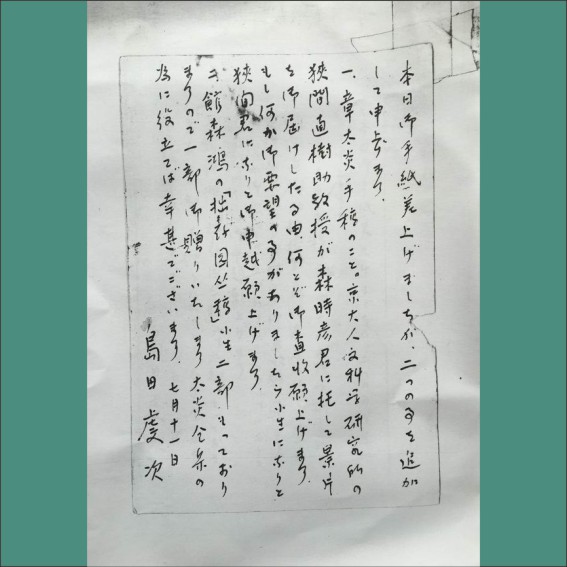 本日御手紙差上げましたが、二つの事を追加
して申上ます。
一、章太炎手稿のこと。京大人文科学研究所の
狭間直樹助教授が森時彦君に托して景片
を御届けしたる由、何とぞ御査収願上げます。
もし何か御要望の事がありましたら小生になりと
狭间君になりと御申越願上げます。
二、館森鴻の「拙存园丛稿」小生二部もっており
ますので一部御贈りいたします。太炎全集の
为に役立てば幸甚でございます。七月十一日
島田虔次